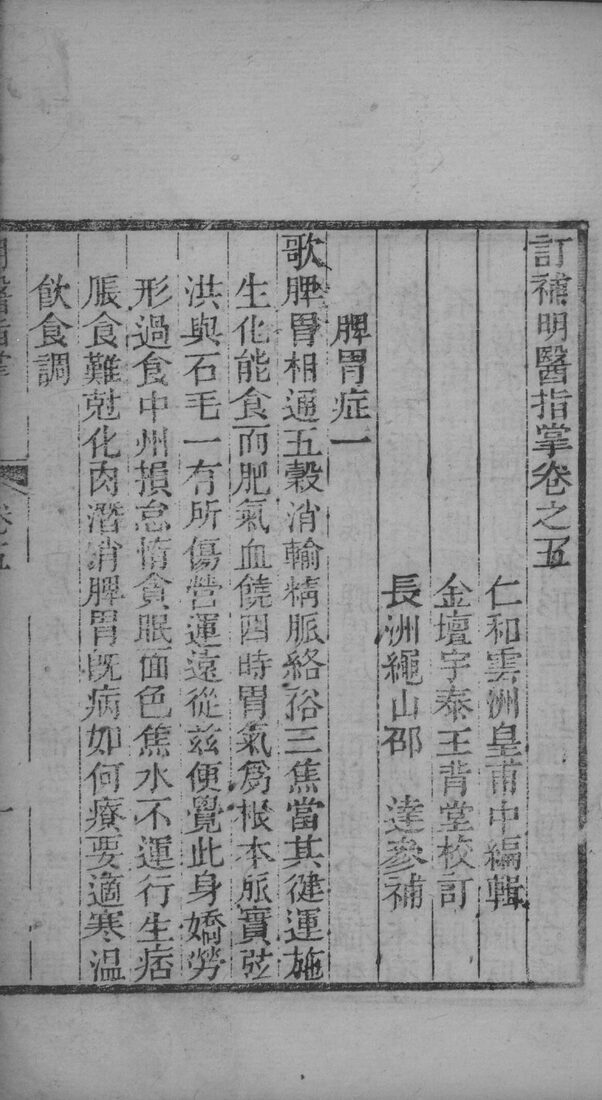 訂補明醫指掌卷之五
仁和雲洲皇甫中編輯
金壇宇泰王肯堂校訂
長洲繩山邵　達參補
脾胃症一
歌脾胃相通五穀消輸精脈絡裕三焦當其健運施
生化能食而肥氣血饒四時胃氣爲根本脈實弦
洪與石毛一有所傷營運遠從兹便覺此身嬌勞
形過食中州損怠惰貪眠面色焦水不運行生痞
脹食難尅化肉潛消脾胃既病如何療要適寒温
飲食調
明醫指掌
卷五
一